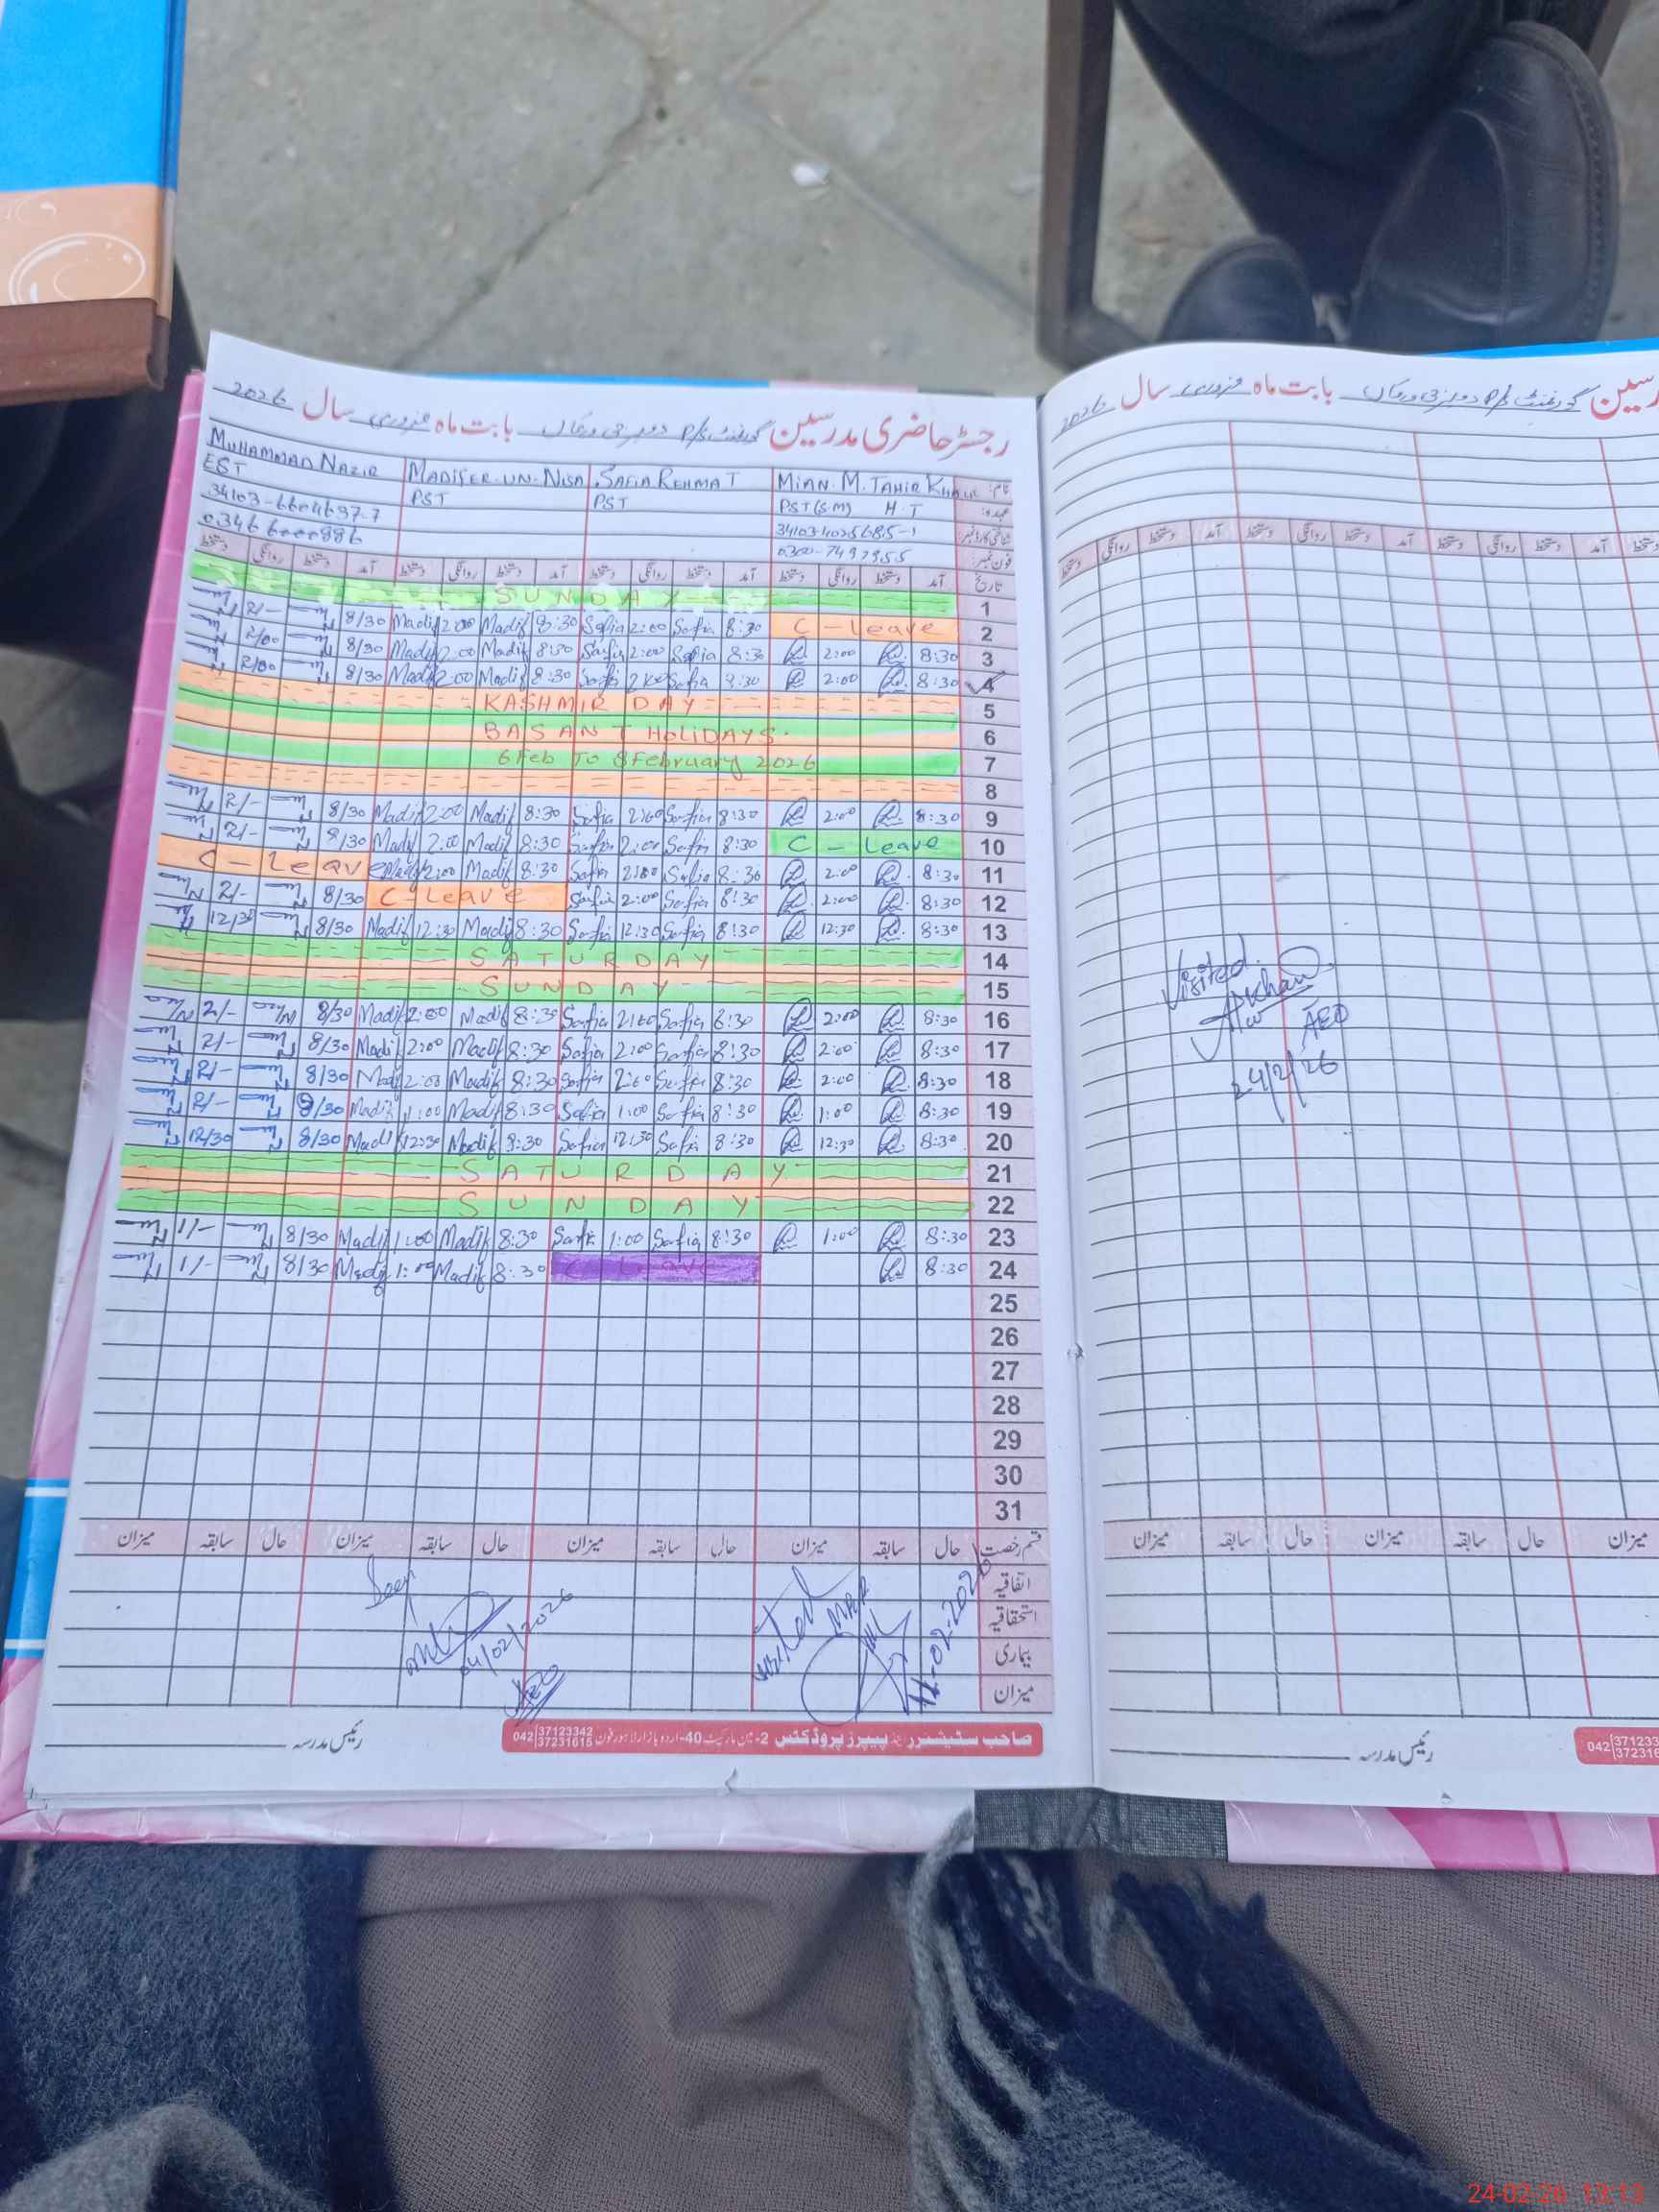 رجسٹر حاضری مدرسین گورنمنٹ P/S بابت ماہ فروری سال 2026
نام: MIAN. M. TAHIR KHAN SAFIA REHMAT MADIFER-UN-NISA MUHAMMAD NAZIR
عہدہ: PST (S.M) H.T PST PST EST
شناختی کارڈ نمبر
فون نمبر: 0300-7497955
تاریخ آمد دستخط روانگی دستخط آمد دستخط روانگی دستخط آمد دستخط روانگی دستخط آمد دستخط روانگی دستخط
1 SUNDAY
2 C-Leave 8:30 Safia 2:00 Safia 8:30 Madif 2:00 Madif 8/30 2/-
3 8:30 2:00 8:30 Safia 2:00 Safia 8:30 Madif 2:00 Madif 8/30 2/00
4 8:30 2:00 8:30 Safia 2:00 8:30 Madif 2:00 Madif 8/30 2/00
5 KASHMIR DAY
6 BASANT HOLIDAYS.
7 6 Feb To 8 February 2026
8
9 8:30 2:00 8:30 Safia 2:00 Safia 8:30 Madif 2:00 Madif 8/30 2/-
10 C-Leave 8:30 Safia 2:00 Safia 8:30 Madif 2:00 Madif 8/30 2/-
11 8:30 2:00 8:30 Safia 2:00 Safia 8:30 Madif 2:00 C-Leave
12 8:30 2:00 8:30 Safia 2:00 Safia C-Leave 8/30 2/-
13 8:30 12:30 8:30 Safia 12:30 Safia 8:30 Madif 12:30 Madif 8/30 12/30
14 SATURDAY
15 SUNDAY
16 8:30 2:00 8:30 Safia 2:00 Safia 8:30 Madif 2:00 Madif 8/30 2/-
17 8:30 2:00 8:30 Safia 2:00 Safia 8:30 Madif 2:00 Madif 8/30 2/-
18 8:30 2:00 8:30 Safia 2:00 Safia 8:30 Madif 2:00 Madif 8/30 2/-
19 8:30 1:00 8:30 Safia 1:00 Safia 8:30 Madif 1:00 Madif 8/30 2/-
20 8:30 12:30 8:30 Safia 12:30 Safia 8:30 Madif 12:30 Madif 8/30 12/30
21 SATURDAY
22 SUNDAY
23 8:30 1:00 8:30 Safia 1:00 Safia 8:30 Madif 1:00 Madif 8/30 1/-
24 8:30 C-Leave 8:30 Madif 1:00 Madif 8/30 1/-
25
26
27
28
29
30
31
قسم رخصت حال سابقہ میزان حال سابقہ میزان حال سابقہ میزان حال سابقہ میزان
اتفاقیہ
استحقاقیہ
بیماری
میزان
Visited
11-02-2026
Seen
04/02/2026
AEO
رئیس مدرسہ
صاحب سٹیشنرز اینڈ پیپرز پروڈکٹس 2-مین مارکیٹ 40-اردو بازار لاہور فون 042 37123342 37231615
سین گورنمنٹ P/S بابت ماہ فروری سال 2026
آمد دستخط روانگی دستخط آمد دستخط روانگی دستخط
Visited.
Khan
AEO
24/2/26
میزان حال سابقہ میزان حال سابقہ میزان
رئیس مدرسہ
042
24-02-26 13:13